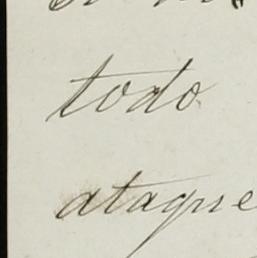 todo
ataque